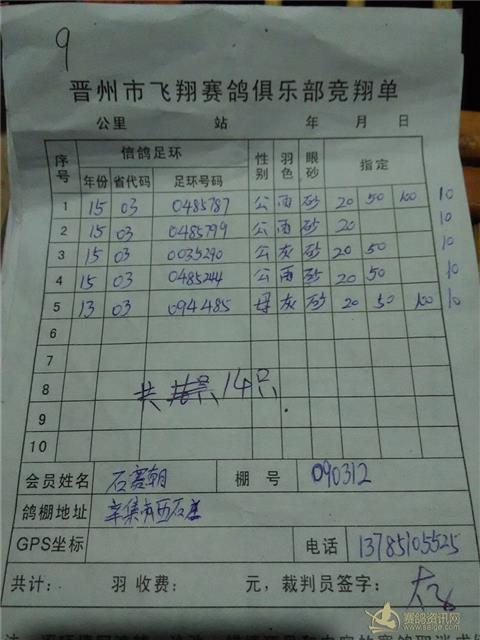 9
晋州市飞翔赛鸽俱乐部竞翔单
公里 站 年 月 日
序号 信鸽足环 性别 羽色 眼砂 指定
年份 省代码 足环号码
1 15 03 0485787 公 雨 砂 20 50 100 10
2 15 03 0485799 公 雨 砂 20 10
3 15 03 0035290 公 灰 砂 20 50 10
4 15 03 0485244 公 雨 砂 20 50 10
5 13 03 094485 母 灰 砂 20 50 100 10
6
7
8 共 14只
9
10
会员姓名 石赛朝 棚号 090312
鸽棚地址 辛集市西石
GPS坐标 电话 13785105525
共计: 羽 收费: 元,裁判员签字:
赛鸽资讯网
www.saige.com